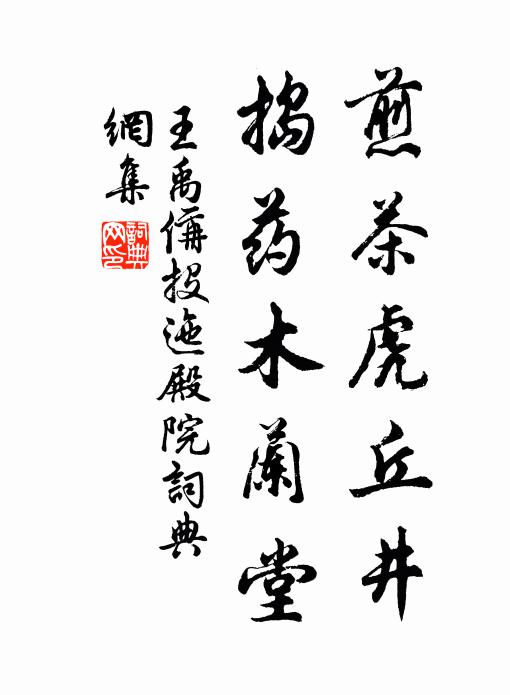 煎茶虎丘井
搗药木蘭堂
王禹偁投迤殿院詞典
網集
詞典网印